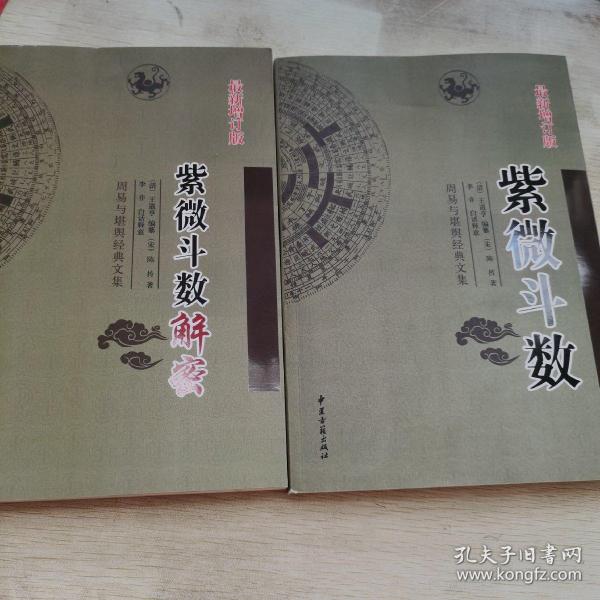 最新增订版
紫微斗数解密
(清)王道亨 编纂 (宋)陈抟 著
李非 白话释意
周易与堪舆经典文集
最新增订版
紫微斗数
(清)王道亨 编纂 (宋)陈抟 著
李非 白话释意
周易与堪舆经典文集
中医古籍出版社
孔夫子旧书网
www.kongfz.com